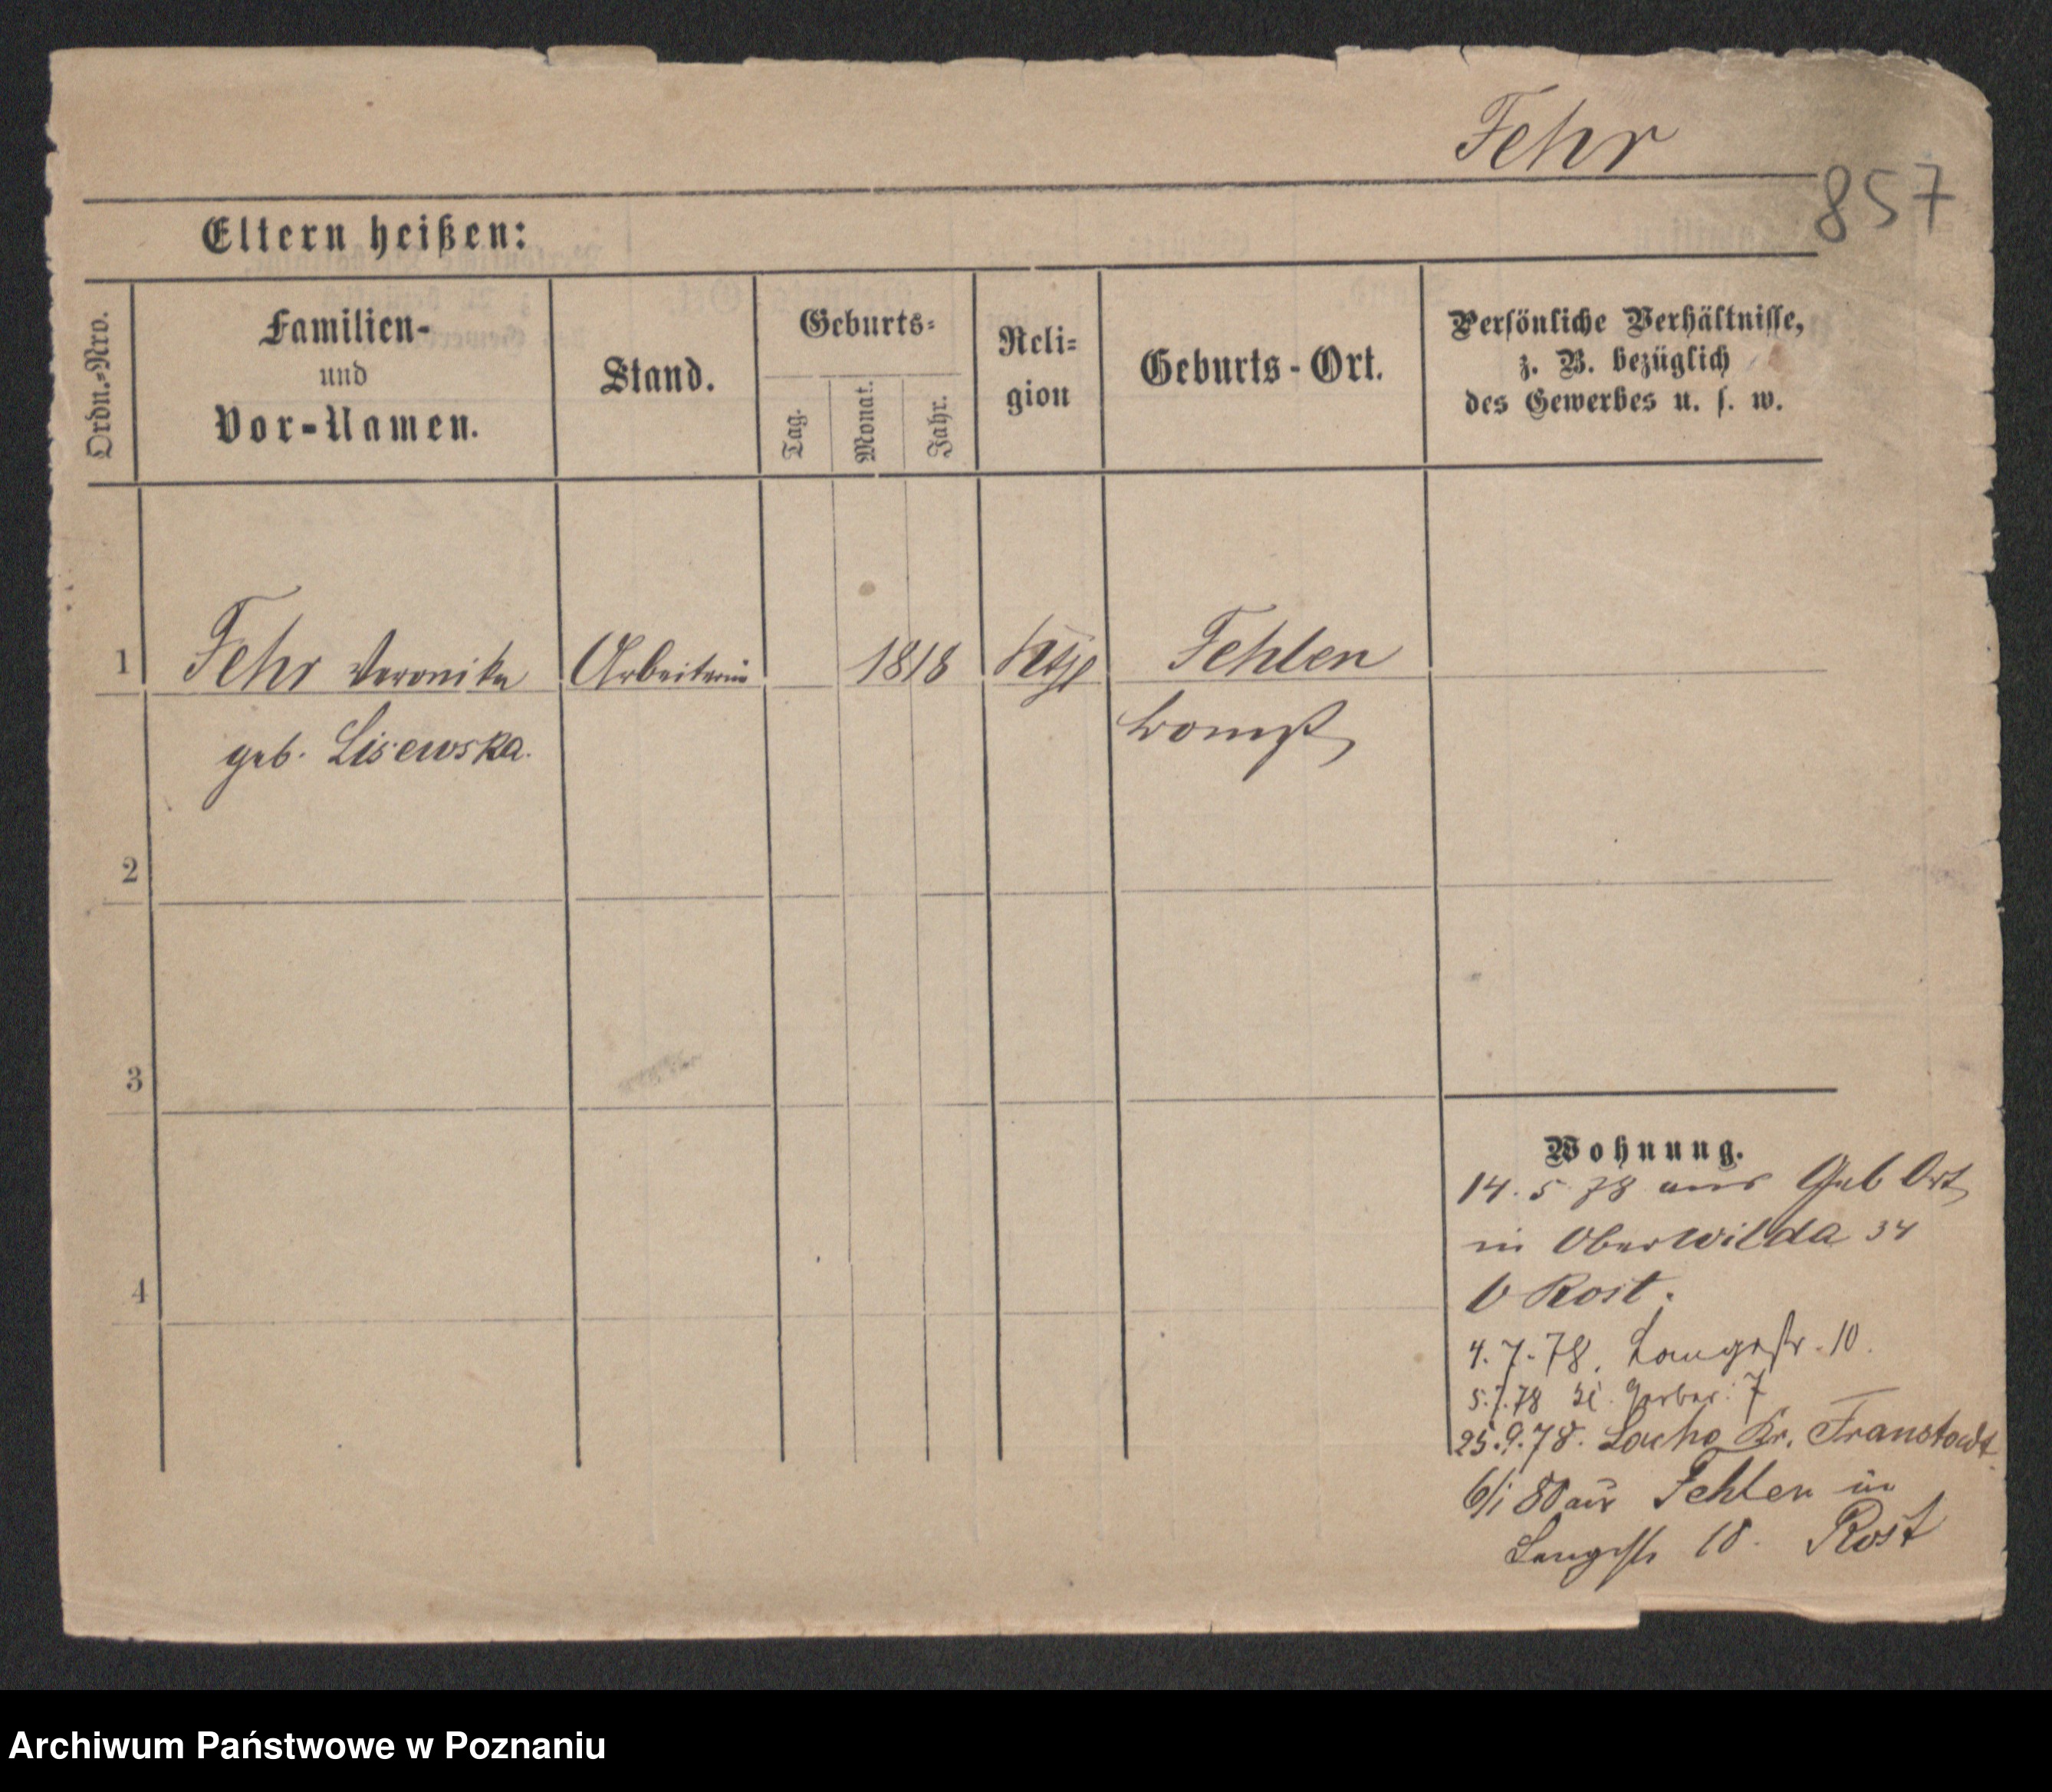 Fehr
857
Eltern heißen:
Ordn.-Nro.
Familien-
und
Vor-Namen.
Stand.
Geburts-
Tag.
Monat.
Jahr.
Reli-
gion
Geburts-Ort.
Persönliche Verhältnisse,
z. B. bezüglich
des Gewerbes u. s. w.
1 Fehr Veronika Arbeiterin 1818 Fehlen
geb. Lisewska. Bomst
2
3
4
Wohnung.
14. 5 78 aus Geb Ort
in Oberwilda 34
b Rost.
4. 7. 78. Langestr. 10.
5. 7. 78 Kl. Gerber. 7
25. 9. 78. Kr. Fraustadt
6/1 80 aus Fehlen in
Langestr 10. Rost
Archiwum Państwowe w Poznaniu